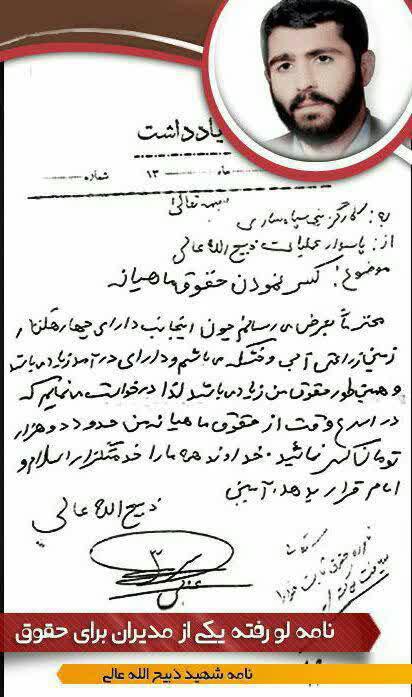 یادداشت
ماه ۱۳ شماره
بسمه تعالی
به: کارگزینی سپاه ساری
از: پاسدار عملیات ذبیح الله عالی
موضوع: کسر نمودن حقوق ماهیانه
محترماً بعرض می رسانم چون اینجانب دارای چهار هکتار
زمین زراعتی آبی و خشکه می باشم و دارای درآمد زیاد می باشد
و همین طور حقوق من زیاد می باشد لذا درخواست می نمایم که
در اسرع وقت از حقوق ماهیانه من حدود دو هزار
تومان کسر نمائید. خداوند همه ما را خدمتگزار اسلام و
امام قرار بدهد. آمین
ذبیح الله عالی
نامه لو رفته یکی از مدیران برای حقوق
نامه شهید ذبیح الله عالی